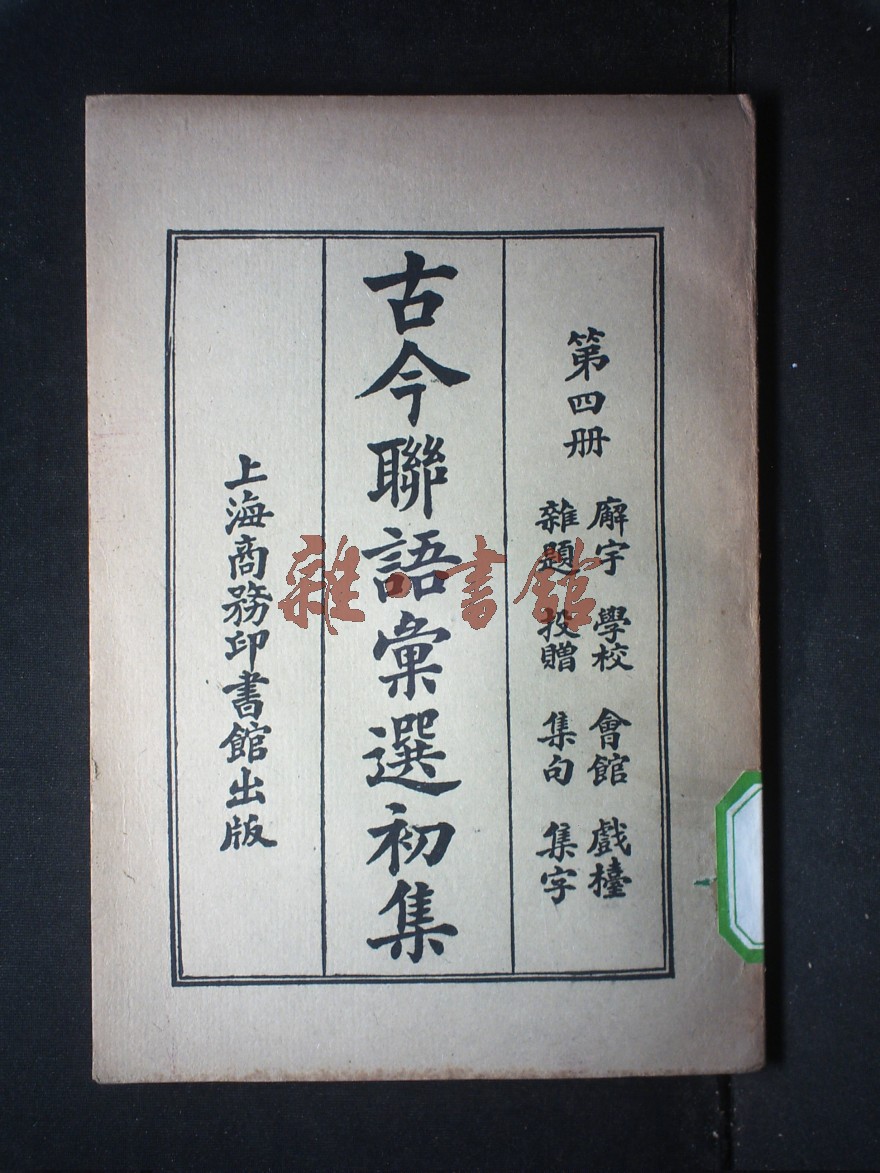 第四册
廨宇 學校 會館 戲檯
雜題 投贈 集句 集字
古今聯語彙選初集
上海商務印書館出版
雜·書館